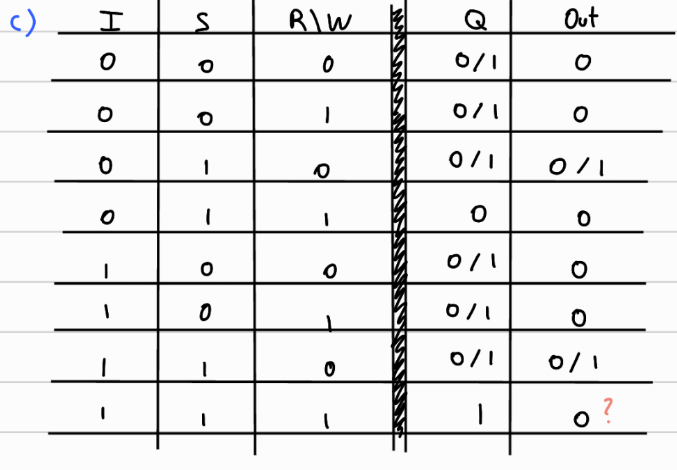 c) I S R\W Q Out
0 0 0 0/1 0
0 0 1 0/1 0
0 1 0 0/1 0/1
0 1 1 0 0
1 0 0 0/1 0
1 0 1 0/1 0
1 1 0 0/1 0/1
1 1 1 1 0?